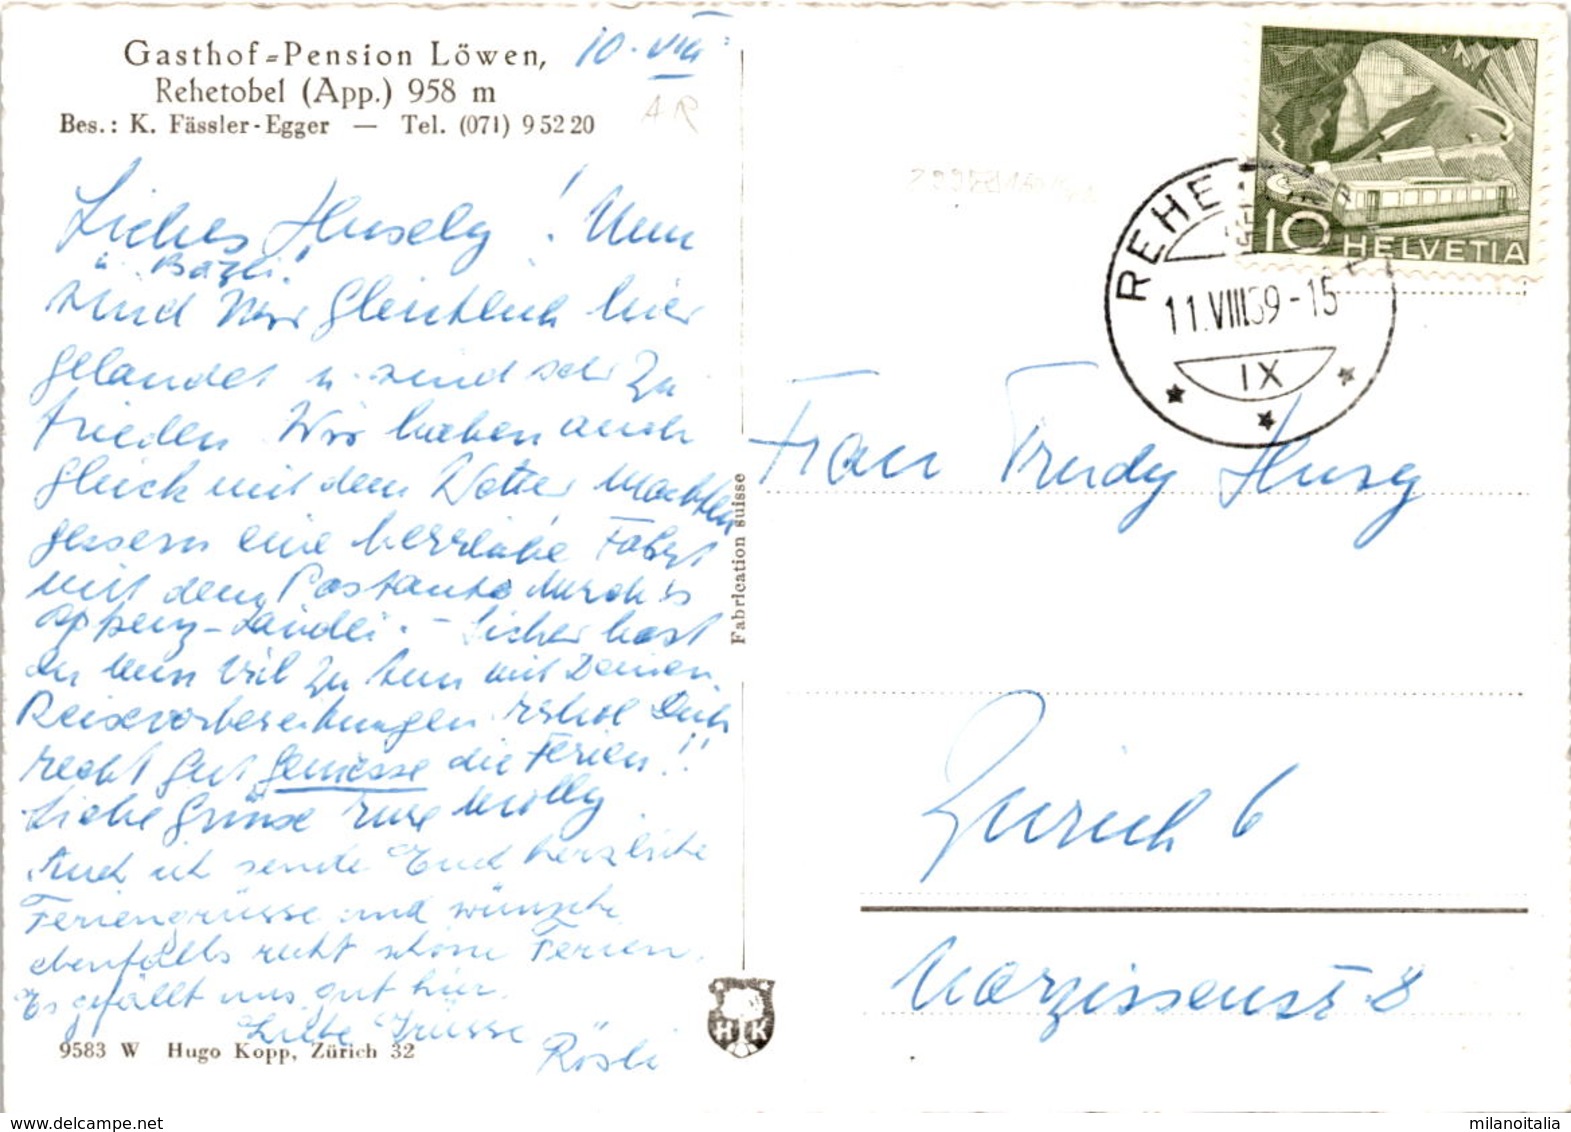 Gasthof=Pension Löwen,
Rehetobel (App.) 958 m
Bes.: K. Fässler-Egger — Tel. (071) 9 52 20
10. VIII.
AR
Liebes Husely! Nun
u. Bäzli!
sind Wir glücklich hier
gelandet u. sind sehr Zu
frieden Wir haben auch
glück mit dem Wetter machten
gestern eine herrliche Fahrt
mit dem Postauto durch's
Appenz-Ländli. - Sicher hast
du nun Viel Zu tun mit Deinen
Reisevorbereitungen. erhol Dich
recht gut geniesse die Ferien!!
Liebe Grüsse Eure Molly
Auch ich sende Euch herzliche
Feriengrüsse und wünsche
ebenfalls recht schöne Ferien.
Es gefällt uns gut hier.
Liebe Grüsse
Rösli
9583 W Hugo Kopp, Zürich 32
Fabrication suisse
H K
10 HELVETIA
REHE
11.VIII.59-15
IX
Frau Trudy Husy
Zürich 6
Narzissenstr. 8
milanoitalia